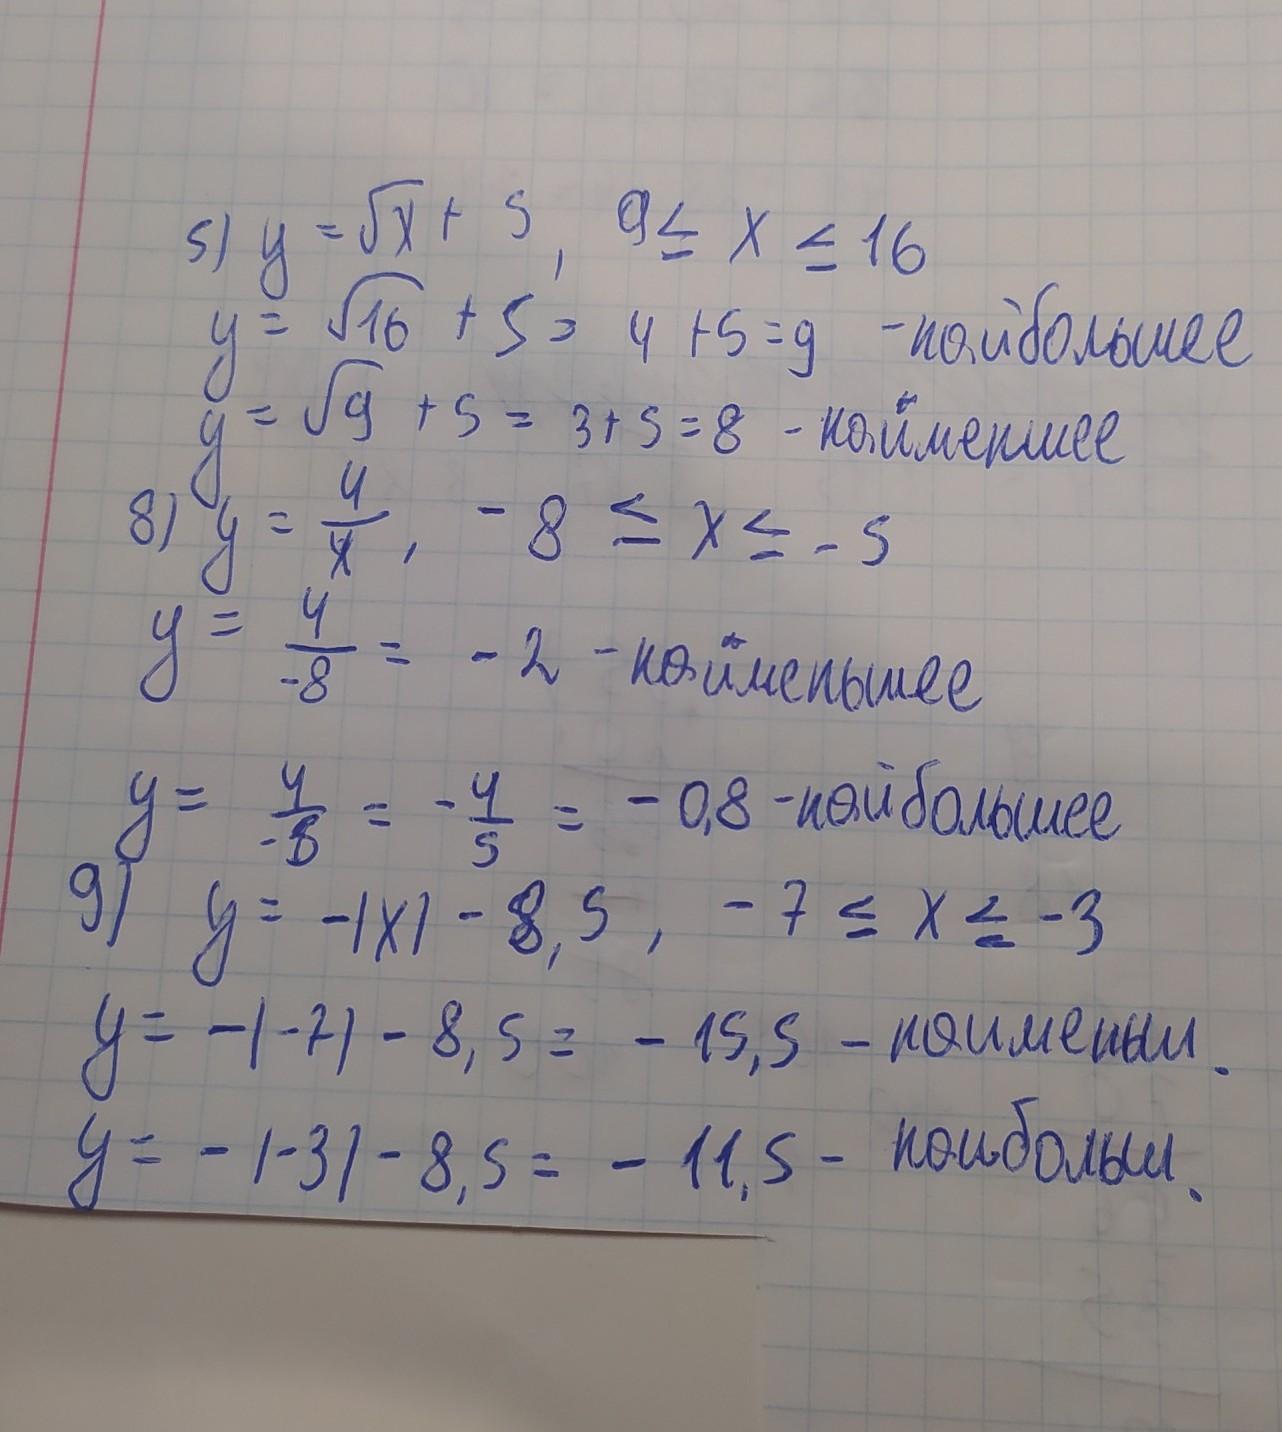 5) y = √x + 5, 9 ≤ x ≤ 16
y = √16 + 5 = 4 + 5 = 9 - найбольшее
y = √9 + 5 = 3 + 5 = 8 - найменшее
8) y = 4/x, - 8 ≤ x ≤ - 5
y = 4/-8 = - 2 - найменьшее
y = 4/-5 = - 4/5 = - 0,8 - найбольшее
9) y = -|x| - 8,5, - 7 ≤ x ≤ - 3
y = -|-7| - 8,5 = - 15,5 - наименьш.
y = - |-3| - 8,5 = - 11,5 - наибольш.